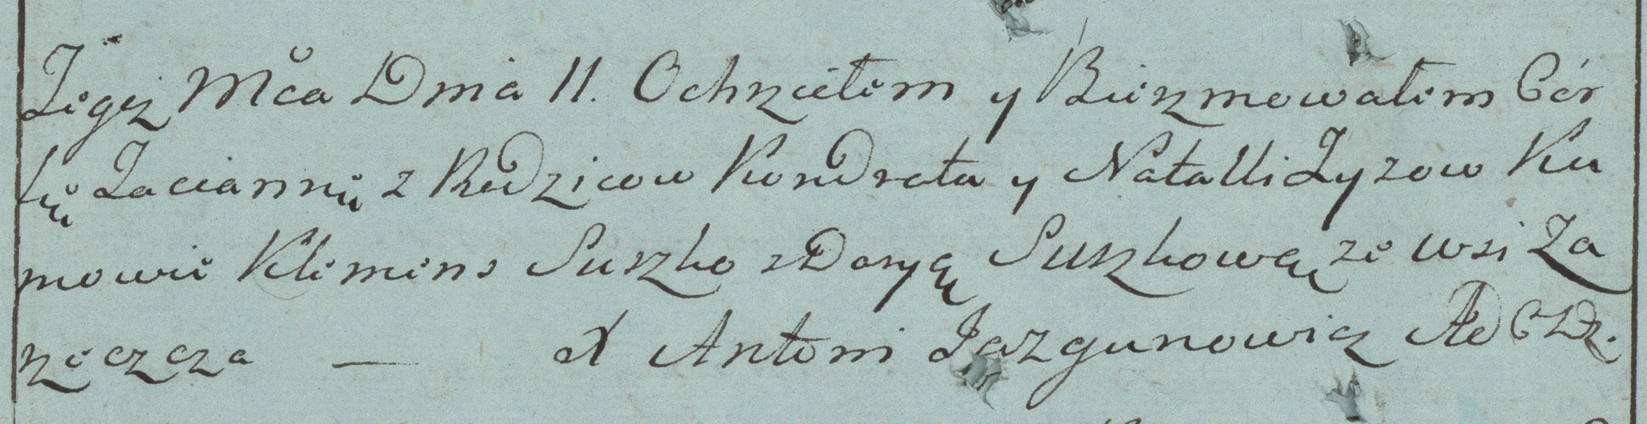 Tegoż Mca Dnia 11. Ochrzciłem y Bierzmowałem Cór
kę Taciannę z Rodzicow Kondrata y Natalli Zyzow Ku
mowie Klemens Suszko z Doryą Suszkową ze wsi Za
rzeczcza — X Antoni Jazgunowicz